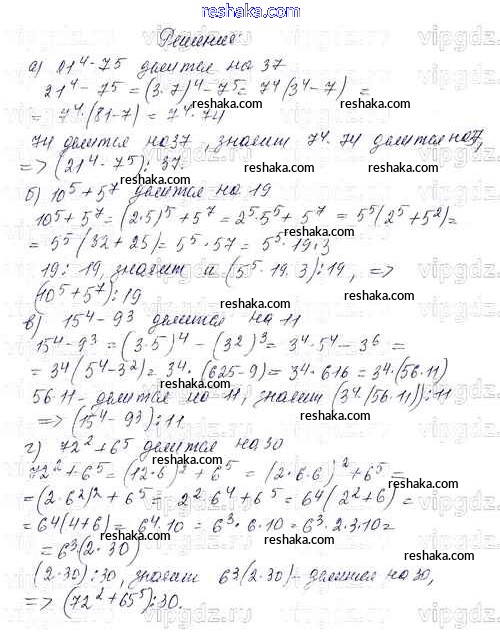 www.reshaka.com
Решение:
а) 21⁴-7⁵ делится на 37
21⁴-7⁵=(3·7)⁴-7⁵=7⁴(3⁴-7)=
=7⁴(81-7)=7⁴·74
74 делится на 37, значит 7⁴·74 делится на 37,
=> (21⁴-7⁵)⋮37.
б) 10⁵+5⁷ делится на 19
10⁵+5⁷=(2·5)⁵+5⁷=2⁵·5⁵+5⁷=5⁵(2⁵+5²)=
=5⁵(32+25)=5⁵·57=5⁵·19·3
19⋮19, значит и (5⁵·19·3)⋮19, =>
(10⁵+5⁷)⋮19
в) 15⁴-9³ делится на 11
15⁴-9³=(3·5)⁴-(3²)³=3⁴·5⁴-3⁶=
=3⁴(5⁴-3²)=3⁴·(625-9)=3⁴·616=3⁴·(56·11)
56·11- делится на 11, значит (3⁴·(56·11))⋮11
=> (15⁴-9³)⋮11.
г) 72²+6⁵ делится на 30
72²+6⁵=(12·6)²+6⁵=(2·6·6)²+6⁵=
=(2·6²)²+6⁵=2²·6⁴+6⁵=6⁴(2²+6)=
=6⁴(4+6)=6⁴·10=6³·6·10=6³·2·3·10=
=6³(2·30)
(2·30)⋮30, значит 6³(2·30)- делится на 30,
=> (72²+65⁵)⋮30.
reshaka.com
reshaka.com
reshaka.com
reshaka.com
reshaka.com
reshaka.com
reshaka.com
reshaka.com
reshaka.com
reshaka.com
reshaka.com
reshaka.com
reshaka.com
reshaka.com
vipgdz
vipgdz
vipgdz
vipgdz